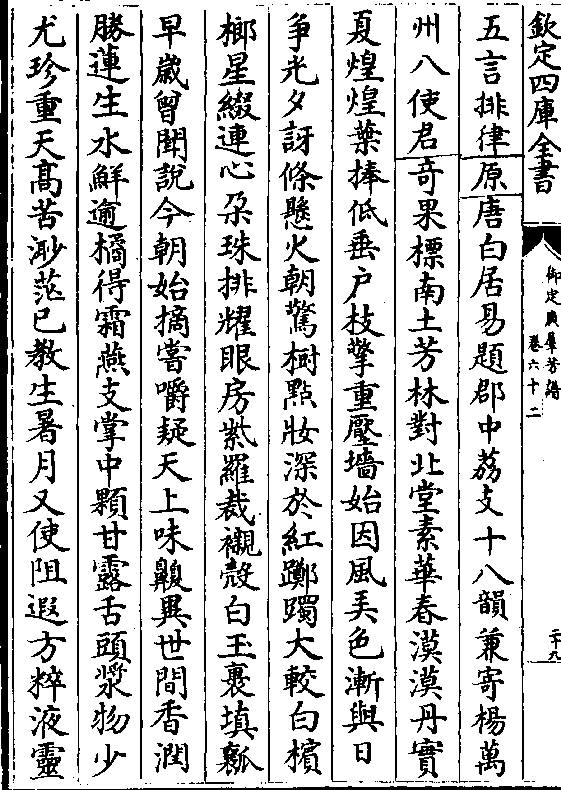 欽定四庫全書
御定廣羣芳譜
卷六十二
二十九
五言排律原唐白居易題郡中荔支十八韻兼寄楊萬
州八使君奇果標南土芳林對北堂素華春漠漠丹實
夏煌煌葉捧低垂户枝擎重壓墻始因風弄色漸與日
爭光夕訝條懸火朝驚樹點妝深於紅躑躅大較白檳
榔星綴連心朵珠排耀眼房紫羅裁襯殼白玉裹填瓤
早歲曾聞說今朝始摘嘗嚼疑天上味齅異世間香潤
勝蓮生水鮮逾橘得霜燕支掌中顆甘露舌頭漿物少
尤珍重天髙苦渺茫已教生暑月又使阻遐方粹液靈